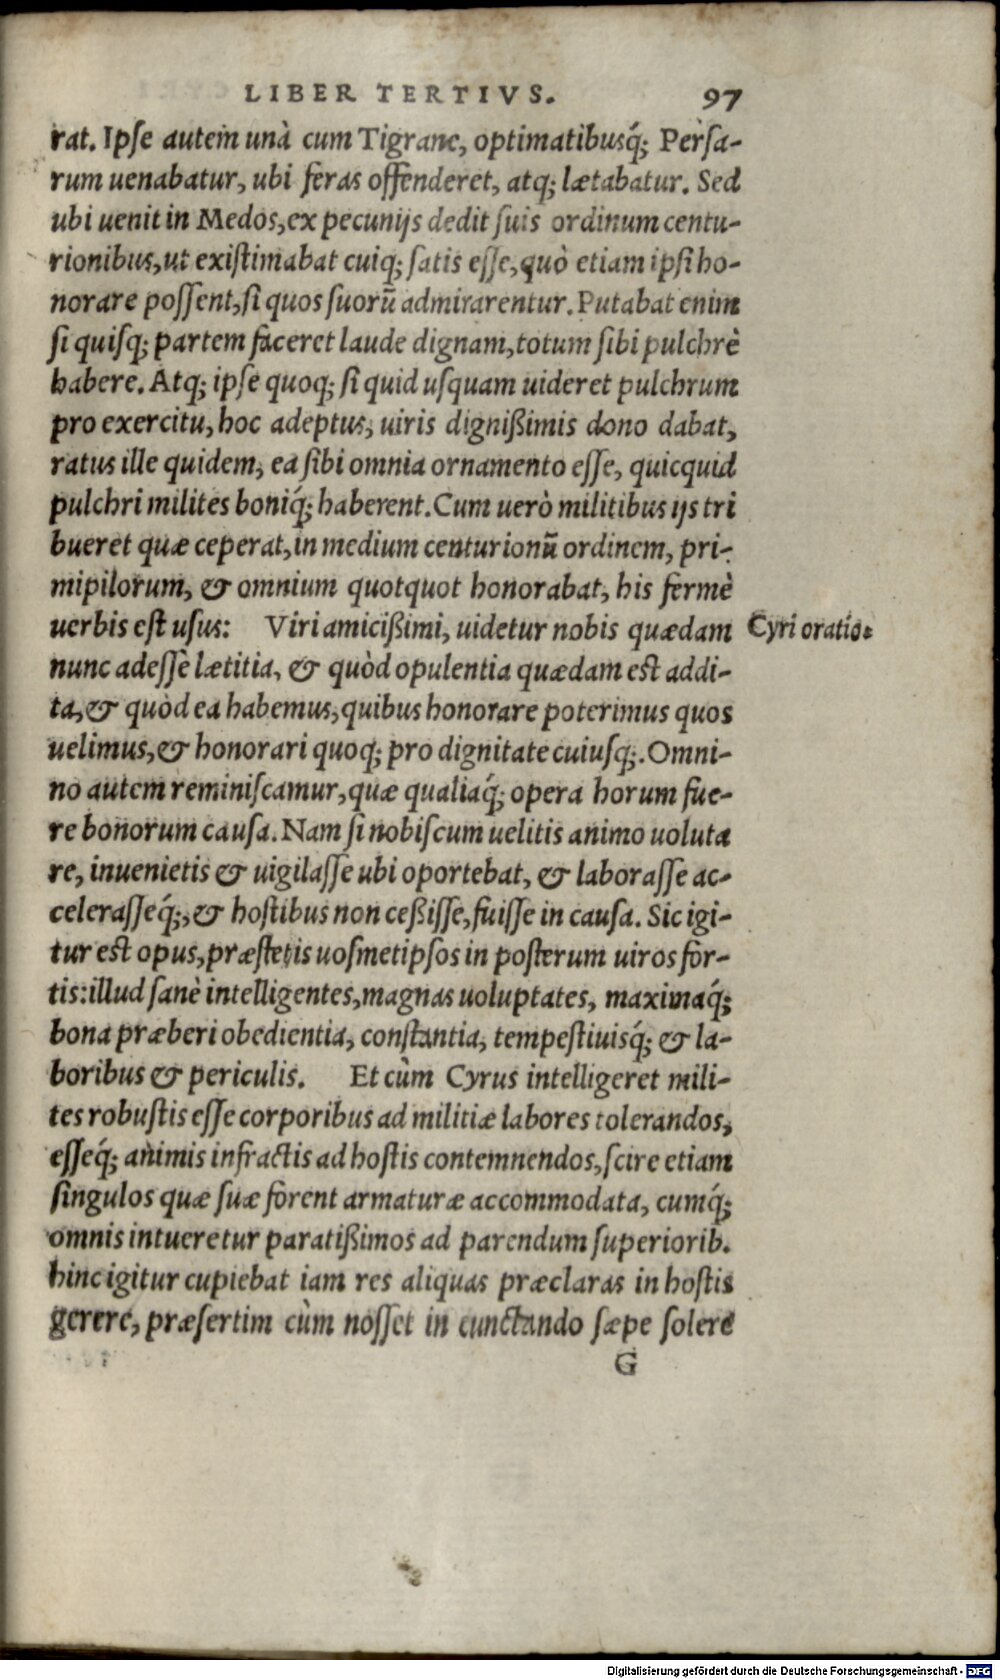 LIBER TERTIVS. 97
rat. Ipſe autem unà cum Tigrane, optimatibusq́; Perſa-
rum uenabatur, ubi feras offenderet, atq; lætabatur. Sed
ubi uenit in Medos, ex pecunijs dedit ſuis ordinum centu-
rionibus, ut exiſtimabat cuiq; ſatis eſſe, quò etiam ipſi ho-
norare poſſent, ſi quos ſuorū admirarentur. Putabat enim
ſi quiſq; partem faceret laude dignam, totum ſibi pulchrè
habere. Atq; ipſe quoq; ſi quid uſquam uideret pulchrum
pro exercitu, hoc adeptus, uiris dignißimis dono dabat,
ratus ille quidem, ea ſibi omnia ornamento eſſe, quicquid
pulchri milites boniq́; haberent. Cum uerò militibus ijs tri
bueret quæ ceperat, in medium centurionū ordinem, pri-
mipilorum, & omnium quotquot honorabat, his fermè
uerbis eſt uſus: Viri amicißimi, uidetur nobis quædam
Cyri oratio.
nunc adeſſe lætitia, & quòd opulentia quædam eſt addi-
ta, & quòd ea habemus, quibus honorare poterimus quos
uelimus, & honorari quoq; pro dignitate cuiuſq;. Omni-
no autem reminiſcamur, quæ qualiaq́; opera horum fue-
re bonorum cauſa. Nam ſi nobiſcum uelitis animo uoluta
re, inuenietis & uigilaſſe ubi oportebat, & laboraſſe ac-
celeraſſeq́;, & hoſtibus non ceßiſſe, fuiſſe in cauſa. Sic igi-
tur eſt opus, præſtetis uoſmetipſos in poſterum uiros for-
tis: illud ſanè intelligentes, magnas uoluptates, maximaq́;
bona præberi obedientia, conſtantia, tempeſtiuisq́; & la-
boribus & periculis. Et cùm Cyrus intelligeret mili-
tes robuſtis eſſe corporibus ad militiæ labores tolerandos,
eſſeq́; animis infractis ad hoſtis contemnendos, ſcire etiam
ſingulos quæ ſuæ forent armaturæ accommodata, cumq́;
omnis intueretur paratißimos ad parendum ſuperiorib.
hinc igitur cupiebat iam res aliquas præclaras in hoſtis
gerere, præſertim cùm noſſet in cunctando ſæpe ſolere
G
Digitalisierung gefördert durch die Deutsche Forschungsgemeinschaft - DFG